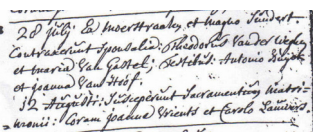 28 July: Ex
Contraxerunt Sponsalia: Theodorus Vander
et maria Van Gestel; testibus: Antonio
et Joanna Van Hoof.
12 Augusti: Susceperunt Sacramentum matri-
=monii: Coram Joanna Vrients et Carolo Lauwers.